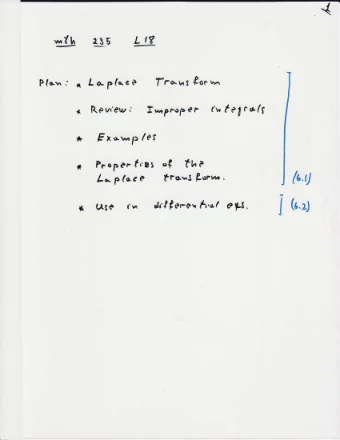 1
mth 235 L18
Plan: * Laplace Transform
* Review: Improper integrals
* Examples
* Properties of the
Laplace transform. (6.1)
* Use in differential eqs. (6.2)